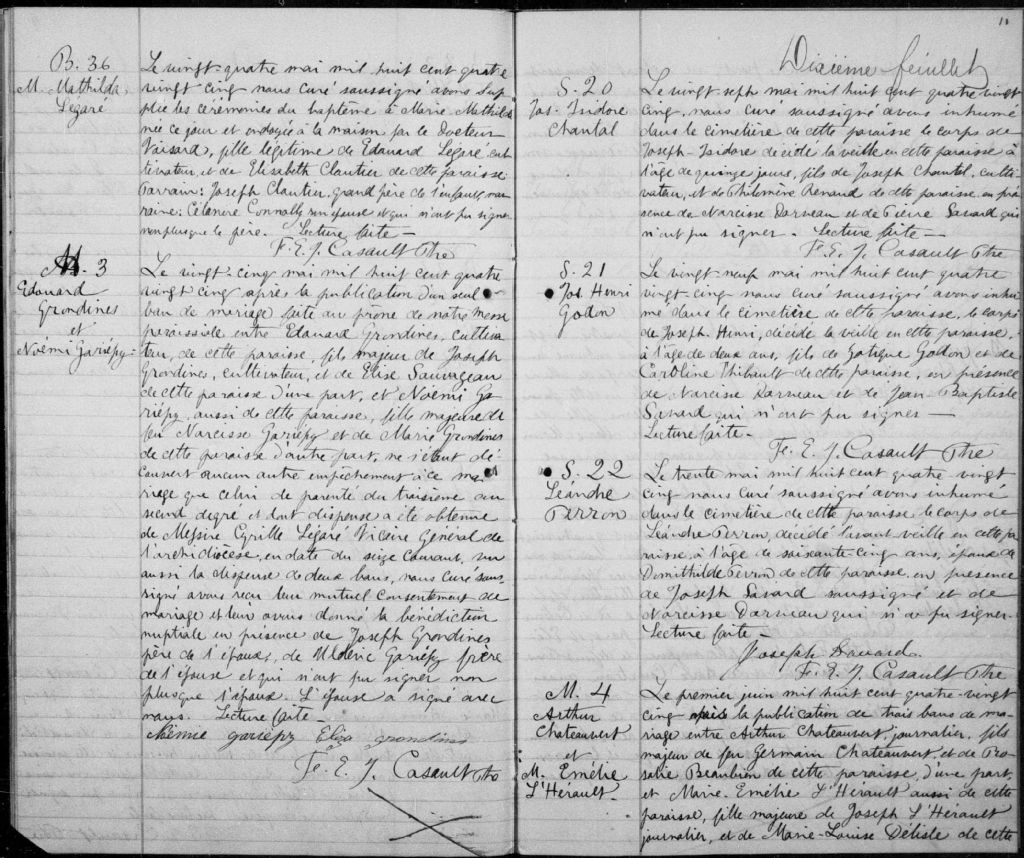 B. 36
M. Mathilda
Légaré
Le vingt-quatre mai mil huit cent quatre
vingt cinq nous curé soussigné avons sup
pléé les cérémonies du baptême à Marie Mathilde
née ce jour et ondoyée à la maison par le Docteur
Vaisard, fille légitime de Edouard Légaré cul
tivateur, et de Elisabeth Cloutier de cette paroisse.
Parrain: Joseph Cloutier, grand père de l'enfant, mar
raine: Connolly son épouse et qui n'ont pu signer
non plus que le père. Lecture faite —
F. E. J. Casault Ptre
M. 3
Edouard
Grondines
et
Noémi Gariépy
Le vingt-cinq mai mil huit cent quatre
vingt cinq, après la publication d'un seul
ban de mariage faite au prone de notre messe
paroissiale entre Edouard Grondines, cultiva
teur, de cette paroisse, fils majeur de Joseph
Grondines, cultivateur, et de Elise Sauvageau
de cette paroisse d'une part, et Noémi Ga
riépy, aussi de cette paroisse, fille majeure de
feu Narcisse Gariépy et de Marie Grondines
de cette paroisse d'autre part, ne s'étant dé
couvert aucun autre empêchement à ce ma
riage que celui de parenté du troisième au
second degré et dont dispense a été obtenue
de Messire Cyrille Légaré Vicaire Général de
l'archidiocèse, en date du seize courant, vu
aussi la dispense de deux bans, nous curé sous-
signé avons reçu leur mutuel consentement de
mariage et leur avons donné la bénédiction
nuptiale en présence de Joseph Grondines
père de l'époux, de Ulderic Gariépy frère
de l'épouse et qui n'ont pu signer non
plus que l'époux. L'épouse a signé avec
nous. Lecture faite —
Noémie gariépy Eliza grondins
F. E. J. Casault Ptre
11
Dixième feuillet
S. 20
Jos. Isidore
Chantal
Le vingt sept mai mil huit cent quatre vingt
cinq, nous curé soussigné avons inhumé
dans le cimetière de cette paroisse le corps de
Joseph-Isidore décédé la veille en cette paroisse à
l'âge de quinze jours, fils de Joseph Chantal, culti-
vateur, et de Philomène Renaud de cette paroisse, en pré
sence de Narcisse Darveau et de Pierre Savard qui
n'ont pu signer. Lecture faite —
F. E. J. Casault Ptre
S. 21
Jos. Henri
Godon
Le vingt neuf mai mil huit cent quatre
vingt-cinq nous curé soussigné avons inhu
mé dans le cimetière de cette paroisse, le corps
de Joseph-Henri, décédé la veille en cette paroisse,
à l'âge de deux ans, fils de Godon et de
Caroline Thibault de cette paroisse, en présence
de Narcisse Darveau et de Jean-Baptiste
Savard qui n'ont pu signer —
Lecture faite —
F. E. J. Casault Ptre
S. 22
Léandre
Perron
Le trente mai mil huit cent quatre vingt
cinq nous curé soussigné avons inhumé
dans le cimetière de cette paroisse le corps de
Léandre Perron, décédé l'avant veille en cette pa
roisse, à l'âge de soixante-cinq ans, époux de
Domithilde Perron de cette paroisse, en présence
de Joseph Savard soussigné et de
Narcisse Darveau qui n'a pu signer
Lecture faite —
Joseph Savard
F. E. J. Casault Ptre
M. 4
Arthur
Chateauvert
et
M. Emélie
L'Hérault
Le premier juin mil huit cent quatre-vingt
cinq après la publication de trois bans de ma-
riage entre Arthur Chateauvert, journalier, fils
majeur de feu Germain Chateauvert, et de Ro
salie Beaulieu de cette paroisse, d'une part,
et Marie-Emélie L'Hérault aussi de cette
paroisse, fille majeure de Joseph L'Hérault
journalier, et de Marie-Louise Délisle de cette